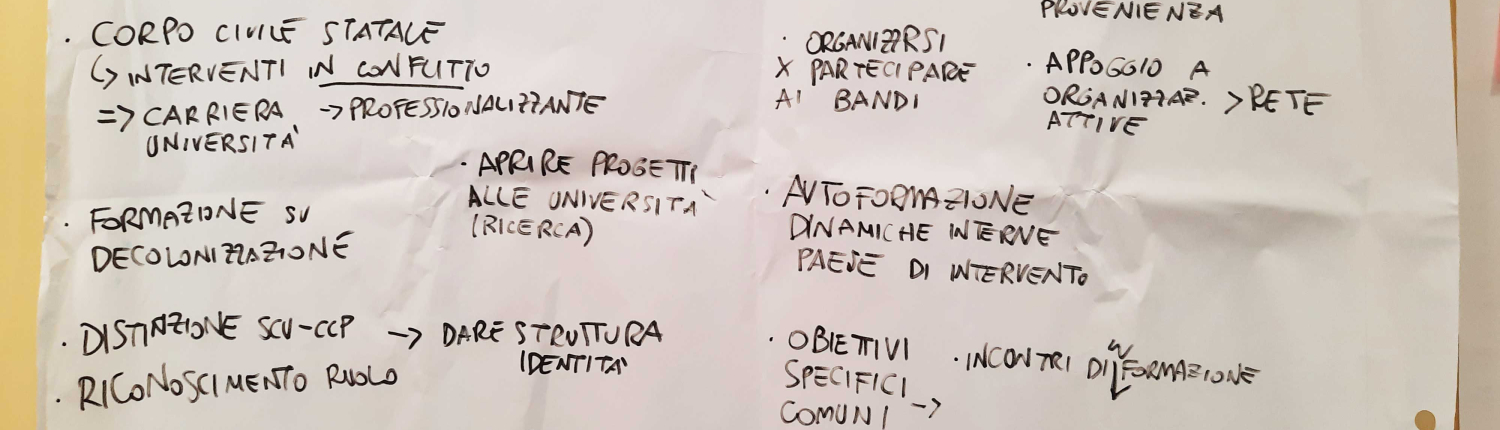 · CORPO CIVILE STATALE
↳ INTERVENTI IN CONFLITTO
=> CARRIERA -> PROFESSIONALIZZANTE
UNIVERSITÀ
· APRIRE PROGETTI
ALLE UNIVERSITÀ
(RICERCA)
· FORMAZIONE SU
DECOLONIZZAZIONE
· DISTINZIONE SCU-CCP -> DARE STRUTTURA
IDENTITÀ
· RICONOSCIMENTO RUOLO
PROVENIENZA
· ORGANIZZRSI
X PARTECIPARE
AI BANDI
· APPOGGIO A
ORGANIZZAZ. > RETE
ATTIVE
· AUTOFORMAZIONE
DINAMICHE INTERNE
PAESE DI INTERVENTO
· OBIETTIVI
SPECIFICI
COMUNI ->
· INCONTRI DI INFORMAZIONE